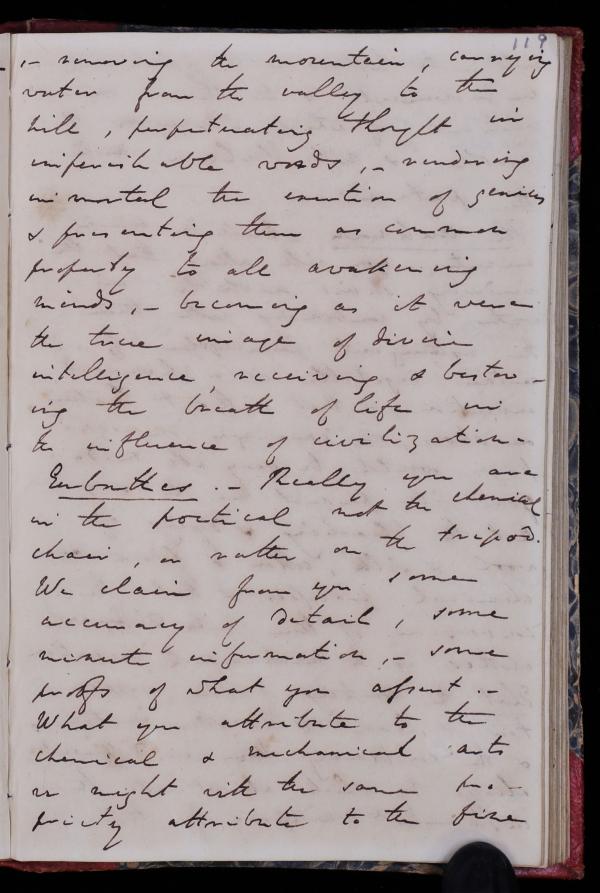 119
,- removing the mountain, conveying
water from the valley to the
hill, perpetuating thought in
imperishable words, - rendering
immortal the exertion of genius
& presenting them as common
property to all awakening
minds, - becoming as it were
the true image of divine
intelligence, receiving & bestow-
ing the breath of life in
the influence of civilization. -
Eubathes. - Really you are
in the poetical not the chemical
chair, or rather on the tripod.
We claim from you some
accuracy of detail, some
minute information, - some
proofs of what you assert. -
What you attribute to the
chemical & mechanical arts
we might with the same pro-
priety attribute to the fine